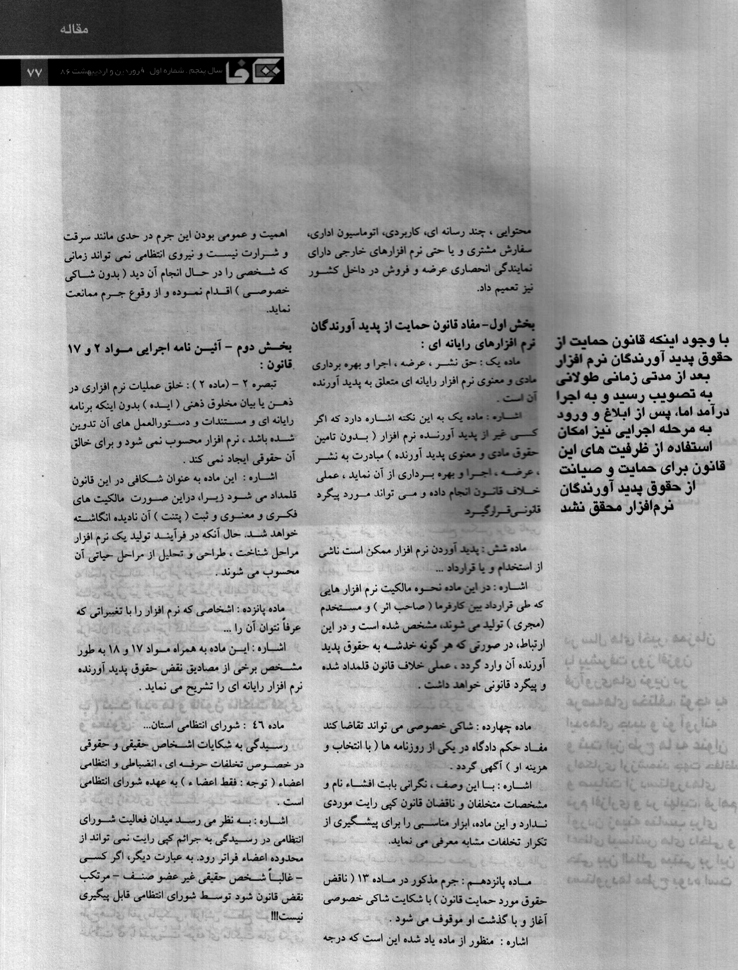 مقاله
تکفا سال پنجم. شماره اول. فروردین و اردیبهشت ۸۶ ۷۷
محتوایی ، چند رسانه ای، کاربردی، اتوماسیون اداری،
سفارش مشتری و یا حتی نرم افزارهای خارجی دارای
نمایندگی انحصاری عرضه و فروش در داخل کشور
نیز تعمیم داد.
بخش اول- مفاد قانون حمایت از پدید آورندگان
نرم افزارهای رایانه ای :
ماده یک : حق نشر ، عرضه ، اجرا و بهره برداری
مادی و معنوی نرم افزار رایانه ای متعلق به پدید آورنده
آن است .
اشاره : ماده یک به این نکته اشاره دارد که اگر
کسی غیر از پدید آورنده نرم افزار ( بدون تامین
حقوق مادی و معنوی پدید آورنده ) مبادرت به نشر
، عرضه ، اجرا و بهره برداری از آن نماید ، عملی
خلاف قانون انجام داده و می تواند مورد پیگرد
قانونی قرار گیرد
ماده شش : پدید آوردن نرم افزار ممکن است ناشی
از استخدام و یا قرارداد ...
اشاره : در این ماده نحوه مالکیت نرم افزار هایی
که طی قرارداد بین کارفرما ( صاحب اثر ) و مستخدم
(مجری ) تولید می شوند، مشخص شده است و در این
ارتباط، در صورتی که هر گونه خدشه به حقوق پدید
آورنده آن وارد گردد ، عملی خلاف قانون قلمداد شده
و پیگرد قانونی خواهد داشت .
ماده چهارده : شاکی خصوصی می تواند تقاضا کند
مفاد حکم دادگاه در یکی از روزنامه ها ( با انتخاب و
هزینه او ) آگهی گردد .
اشاره : با این وصف ، نگرانی بابت افشاء نام و
مشخصات متخلفان و ناقضان قانون کپی رایت موردی
ندارد و این ماده، ابزار مناسبی را برای پیشگیری از
تکرار تخلفات مشابه معرفی می نماید.
ماده پانزدهم : جرم مذکور در ماده ۱۳ ( ناقض
حقوق مورد حمایت قانون ) با شکایت شاکی خصوصی
آغاز و با گذشت او موقوف می شود .
اشاره : منظور از ماده یاد شده این است که درجه
اهمیت و عمومی بودن این جرم در حدی مانند سرقت
و شرارت نیست و نیروی انتظامی نمی تواند زمانی
که شخصی را در حال انجام آن دید ( بدون شاکی
خصوصی ) اقدام نموده و از وقوع جرم ممانعت
نماید.
بخش دوم – آئین نامه اجرایی مواد ۲ و ۱۷
قانون :
تبصره ۲ – (ماده ۲ ) : خلق عملیات نرم افزاری در
ذهن یا بیان مخلوق ذهنی ( ایده ) بدون اینکه برنامه
رایانه ای و مستندات و دستورالعمل های آن تدوین
شده باشد ، نرم افزار محسوب نمی شود و برای خالق
آن حقوقی ایجاد نمی کند .
اشاره : این ماده به عنوان شکافی در این قانون
قلمداد می شود زیرا، دراین صورت مالکیت های
فکری و معنوی و ثبت ( پتنت ) آن نادیده انگاشته
خواهد شد. حال آنکه در فرآیند تولید یک نرم افزار
مراحل شناخت ، طراحی و تحلیل از مراحل حیاتی آن
محسوب می شوند .
ماده پانزده : اشخاصی که نرم افزار را با تغییراتی که
عرفاً نتوان آن را ...
اشاره : این ماده به همراه مواد ۱۷ و ۱۸ به طور
مشخص برخی از مصادیق نقض حقوق پدید آورنده
نرم افزار رایانه ای را تشریح می نماید .
ماده ٤٦ : شورای انتظامی استان...
رسیدگی به شکایات اشخاص حقیقی و حقوقی
در خصوص تخلفات حرفه ای ، انضباطی و انتظامی
اعضاء ( توجه : فقط اعضا ء ) به عهده شورای انتظامی
است .
اشاره : به نظر می رسد میدان فعالیت شورای
انتظامی در رسیدگی به جرائم کپی رایت نمی تواند از
محدوده اعضاء فراتر رود. به عبارت دیگر، اگر کسی
– غالباً شخص حقیقی غیر عضو صنف – مرتکب
نقض قانون شود توسط شورای انتظامی قابل پیگیری
نیست!!!
با وجود اینکه قانون حمایت از
حقوق پدید آورندگان نرم افزار
بعد از مدتی زمانی طولانی
به تصویب رسید و به اجرا
درآمد اما، پس از ابلاغ و ورود
به مرحله اجرایی نیز امکان
استفاده از ظرفیت های این
قانون برای حمایت و صیانت
از حقوق پدید آورندگان
نرم‌افزار محقق نشد